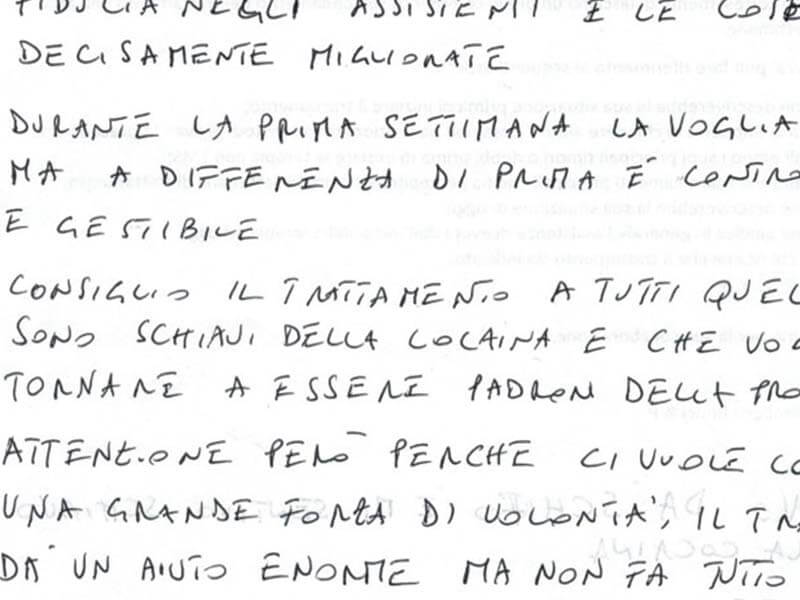 FIDUCIA NEGLI ASSISTENTI E LE COSE
DECISAMENTE MIGLIORATE
DURANTE LA PRIMA SETTIMANA LA VOGLIA
MA A DIFFERENZA DI PRIMA E' CONTRO
E GESTIBILE
CONSIGLIO IL TRATTAMENTO A TUTTI QUEL
SONO SCHIAVI DELLA COCAINA E CHE VOG
TORNARE A ESSERE PADRONI DELLA PRO
ATTENZIONE PERO' PERCHE CI VUOLE CO
UNA GRANDE FORZA DI VOLONTA', IL TRA
DA' UN AIUTO ENORME MA NON FA TUTTO